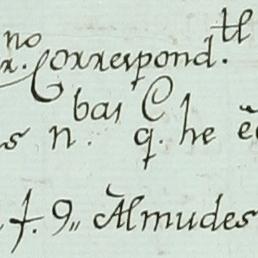 no tl
x. Correspond.
bas C
s n. q. he
f. 9,, Almudes